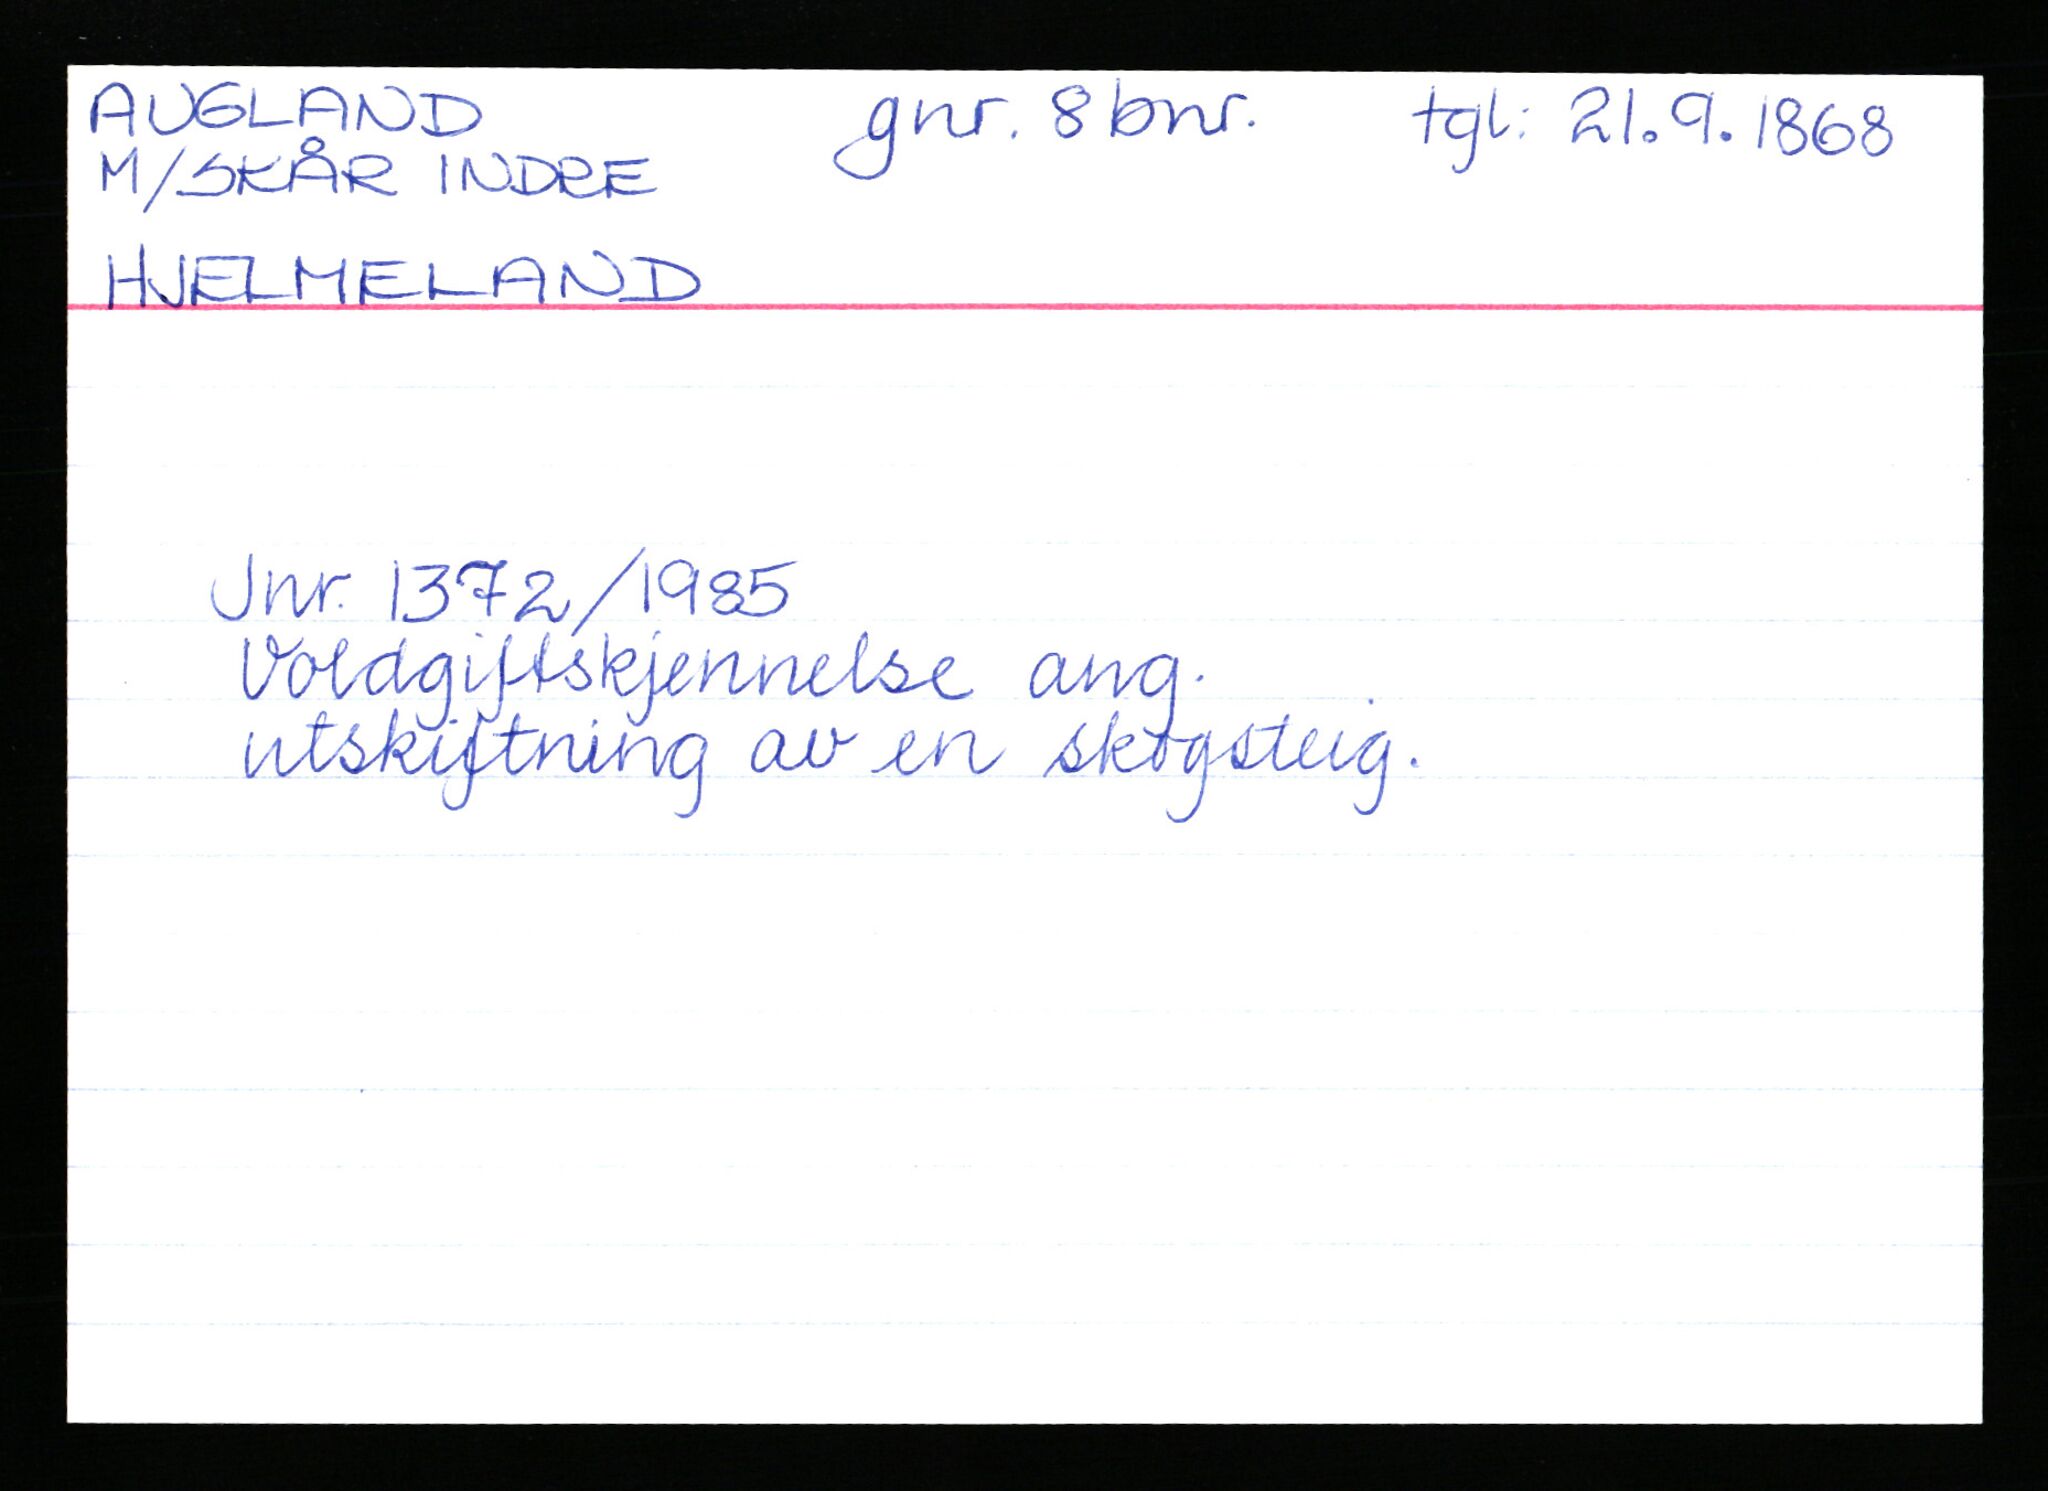 AUGLAND gnr. 8 bnr. tgl: 21.9.1868
M/SKÅR INDRE
HJELMELAND
Jnr. 1372/1985
Voldgiftskjennelse ang.
utskiftning av en skogsteig.